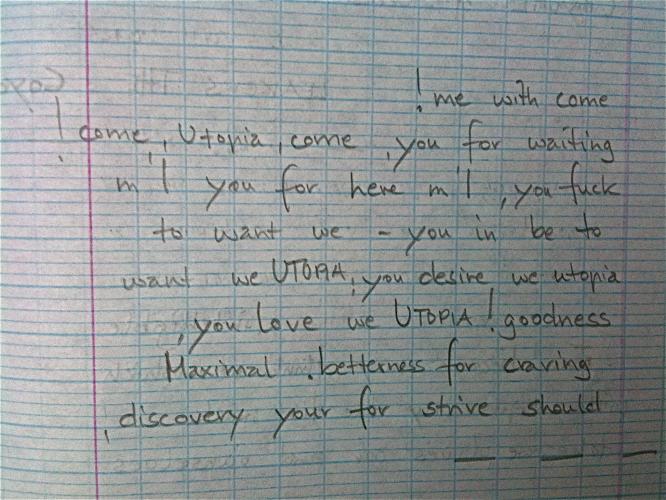 ! me with come
! come, Utopia, come, you for waiting
m'I you for here m'I, you fuck
to want we - you in be to
want we UTOPIA, you desire we utopia
, you love we UTOPIA! goodness
Maximal. betterness for craving
, discovery your for strive should